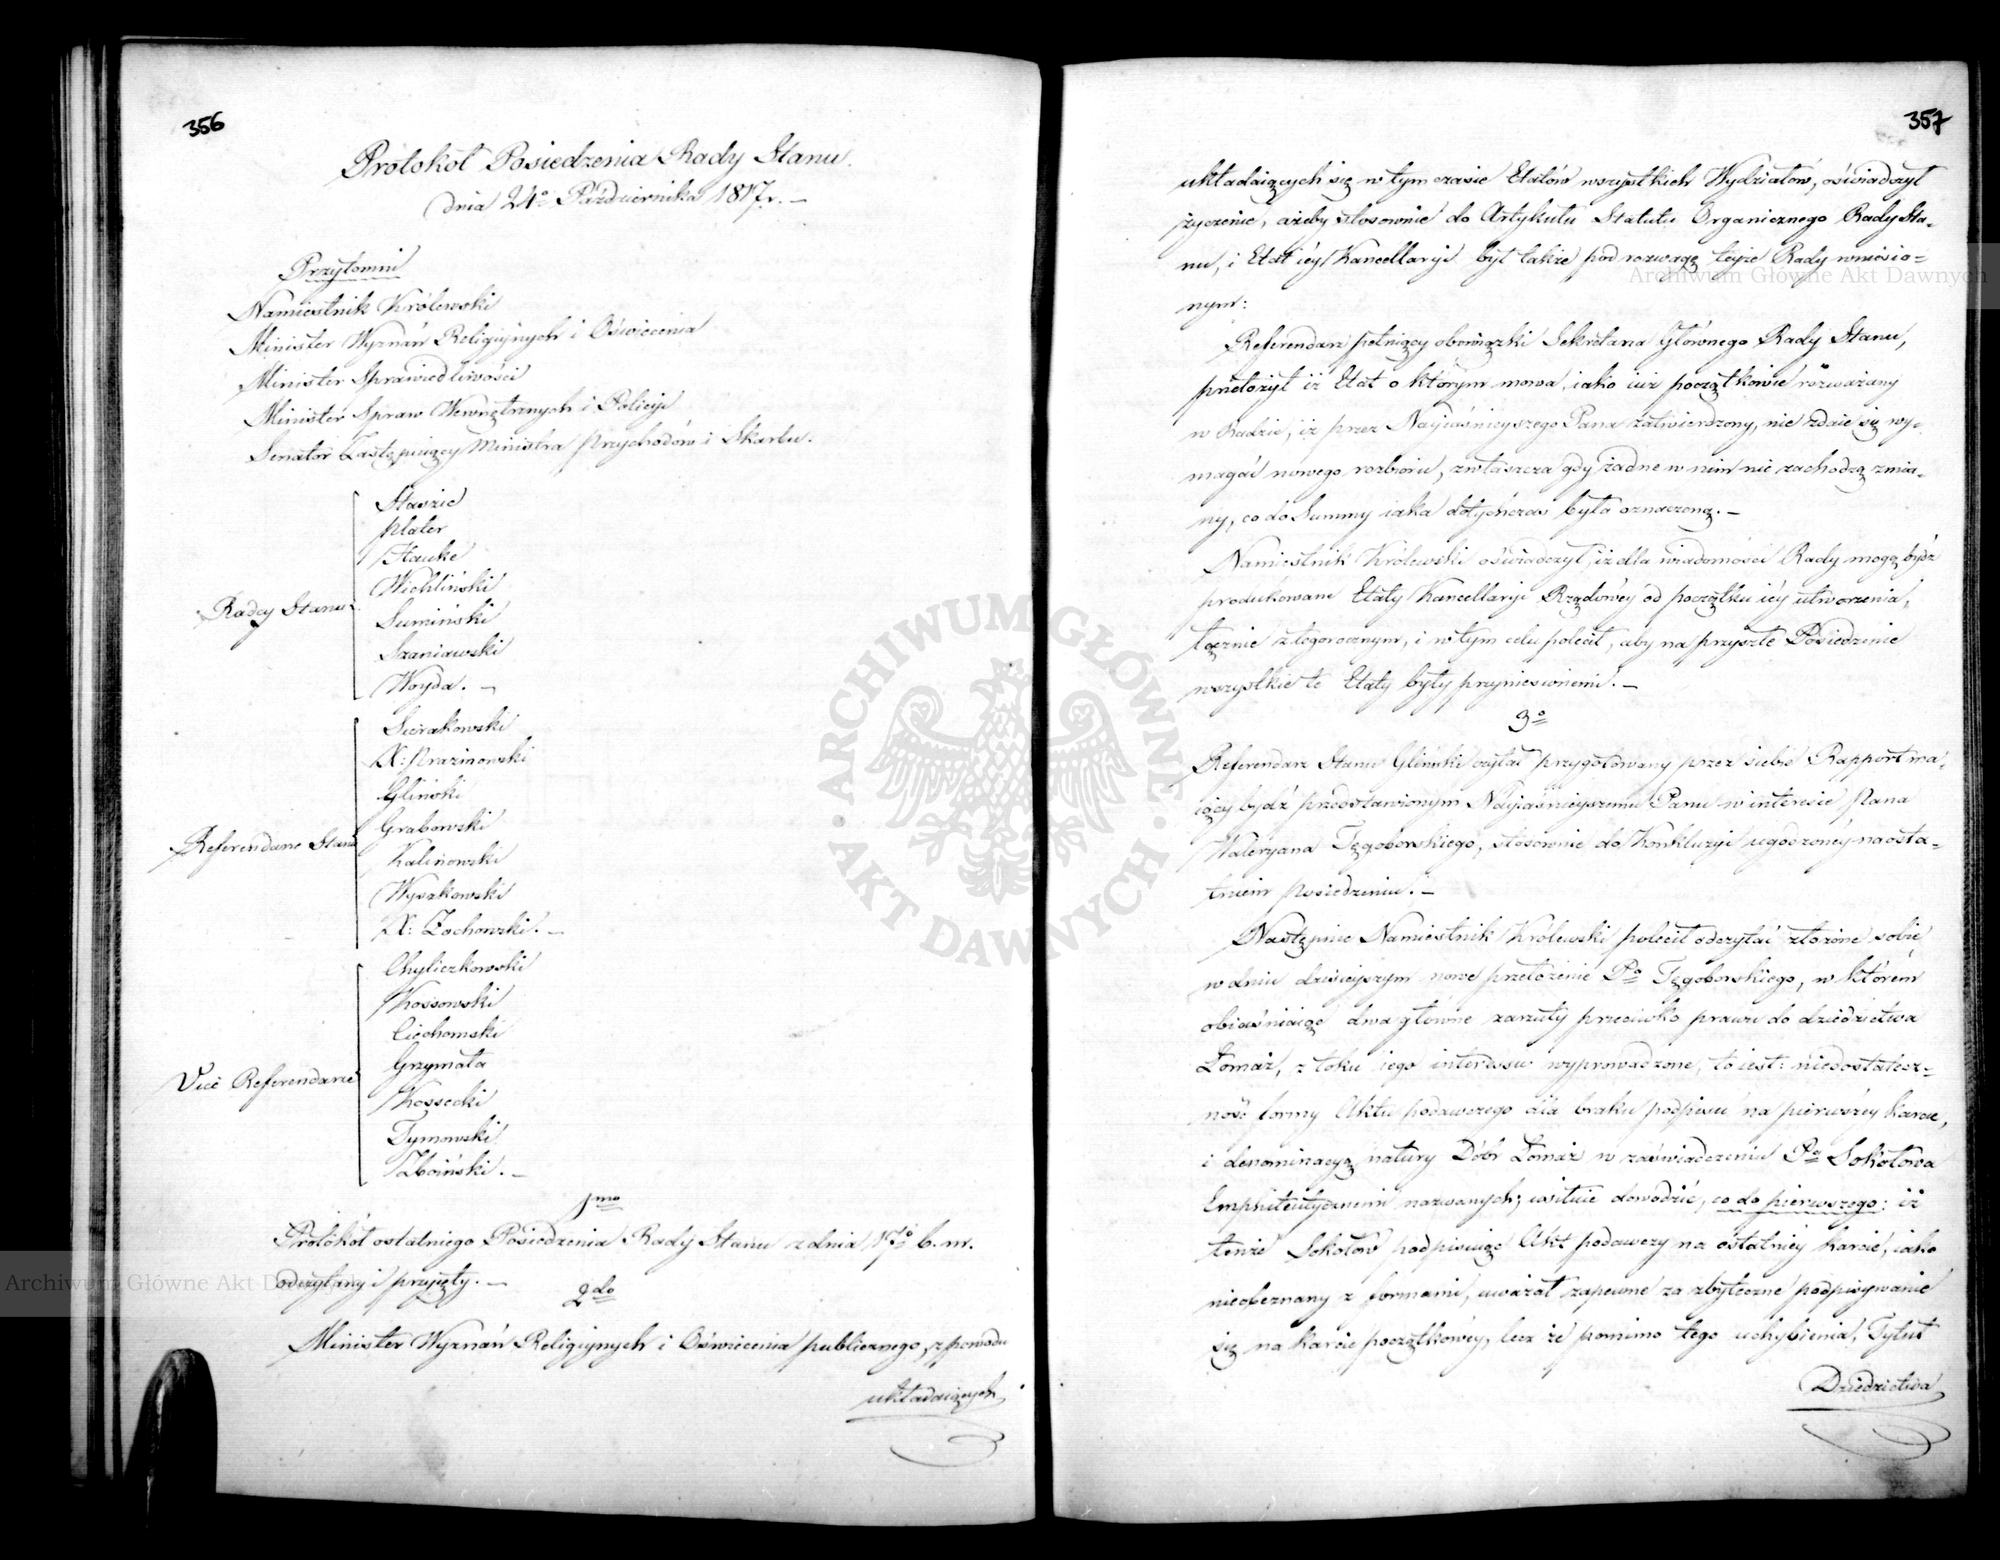 356
Protokół Posiedzenia Rady Stanu.
dnia 24º Października 1817. r. —
Przytomni
Namiestnik Królewski
Minister Wyznań Religiynych i Oświecenia
Minister Sprawiedliwości
Minister Spraw Wewnętrznych i Policyi
Senator Zastępuiący Ministra Przychodów i Skarbu.
Radcy Stanu
Staszic
Plater
Hauke
Wichliński
Sumiński
Szaniawski
Woyda. —
Referendarze Stanu
Sierakowski
X: Prazmowski
Gliński
Grabowski
Kalinowski
Wyszkowski
X: Żochowski. —
Vice Referendarze
Chyliczkowski
Kossowski
Ciechomski
Grzymała
Kossecki
Tymowski
Zboiński. —
1mo
Protokół ostatniego Posiedzenia Rady Stanu z dnia 17go b. m.
odczytany i przyięty. —
2do
Minister Wyznań Religiynych i Oświecenia publicznego, z powodu
układaiących
357
układaiących się w tym czasie Etatów wszystkich Wydziałów, oświadczył
życzenie, ażeby stosownie do Artykułu Statutu Organicznego Rady Sta-
nu, i Etat iéy Kancellaryi był także pod rozwagę teyże Rady wniesio=
nym:
Referendarz pełniący obowiązki Sekretarza Głównego Rady Stanu,
przełożył iż Etat o którym mowa, iako iuż początkowie rozważany
w Radzie, iż przez Nayiaśnieyszego Pana zatwierdzony, nie zdaie się wy-
magać nowego rozbioru, zwłaszcza gdy żadne w nim nie zachodzą zmia-
ny, co do Summy iaka dotychczas była oznaczoną. —
Namiestnik Królewski oświadczył, iż dla wiadomości Rady mogą bydź
produkowane Etaty Kancellaryi Rządowéy od początku iéy utworzenia,
łącznie z tegorocznym, i w tym celu polecił, aby na przyszłe Posiedzenie
wszystkie te Etaty były przyniesionemi. —
3º
Referendarz Stanu Gliński czytał przygotowany przez siebie Rapport ma-
iący bydź przedstawionym Nayiaśnieyszemu Panu w interesie Pana
Waleryana Tęgoborskiego, stosownie do Konkluzyi zgodzonéy na osta=
tniem posiedzeniu. —
Następnie Namiestnik Królewski polecił odczytać złożone sobie
w dniu dzisieyszym nowe przełożenie Pa Tęgoborskiego, w którém
obiaśniaiąc dwa główne zarzuty przeciwko prawu do dziedzictwa
Łomaz, z toku iego interessu wyprowadzone, to iest: niedostatecz=
ność formy Aktu podawczego dla braku podpisu na pierwszéy karcie,
i denominacyą natury Dóbr Łomaz w zaświadczeniu Pa Sokołowa
Emphiteutycznemi nazwanych; usiłuie dowodzić, co do pierwszego: iż
tenże Sokołow podpisuiąc Akt podawczy na ostatniey karcie, iako
nieobeznany z formami, uważał zapewne za zbyteczne podpisywanie
się na karcie początkowéy, lecz że pomimo tego uchybienia, Tytuł
Dziedzictwa
Archiwum Główne Akt Dawnych
Archiwum Główne Akt Dawnych
ARCHIWUM GŁÓWNE AKT DAWNYCH